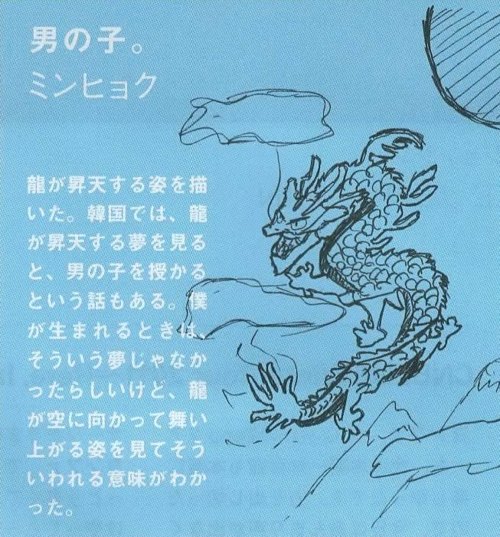 男の子。
ミンヒョク
龍が昇天する姿を描
いた。韓国では、龍
が昇天する夢を見る
と、男の子を授かる
という話もある。僕
が生まれるときは、
そういう夢じゃなか
ったらしいけど、龍
が空に向かって舞い
上がる姿を見てそう
いわれる意味がわか
った。